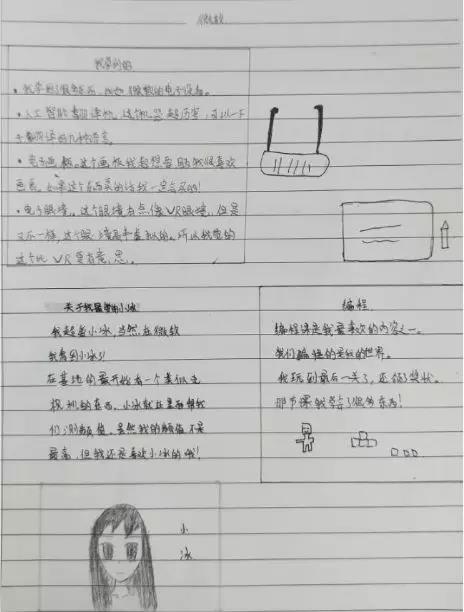 微软
我学到的
·我学到了很多东西，比如微软的电子设备。
·人工智能翻译机，这个机器超厉害，可以一下
子翻译好几种语言。
·电子画板。这个画板我超想要的我很喜欢
画画，如果这个东西卖的话我一定会买的！
·电子眼镜，这个眼镜有点像VR眼镜，但是
又不一样，这个眼镜是半虚拟的。所以我觉的
这个比VR更有意思。
关于我最爱的小冰
我超爱小冰，当然在微软
我看到小冰了！
在基地的最开始有一个类似电
视机的东西，小冰就在里面帮我
们测颜值。虽然我的颜值不是
最高，但我还是喜欢小冰的哦！
编程
编程课是我最喜欢的内容之一。
我们编程的是我的世界。
我玩到最后一关了，还得了奖状。
那节课我学了很多东西！
小
冰